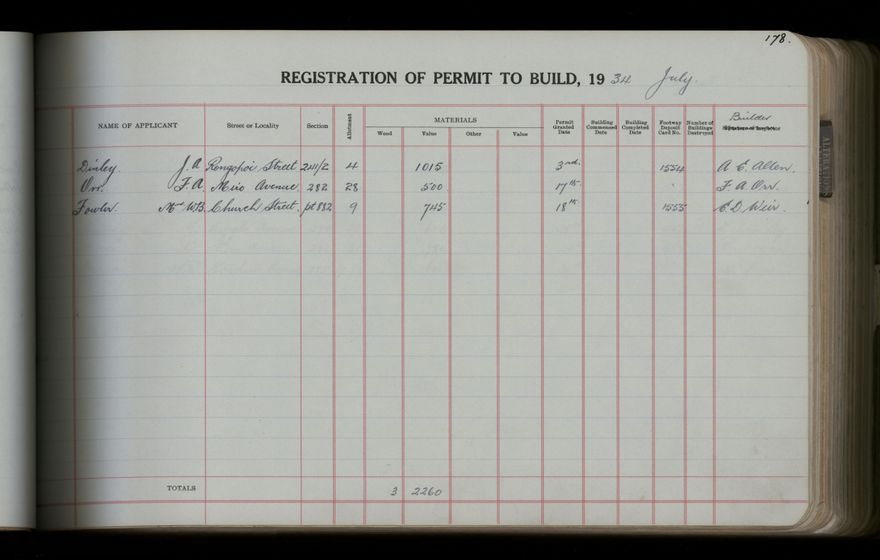 178.
REGISTRATION OF PERMIT TO BUILD, 1934 July.
NAME OF APPLICANT Street or Locality Section Allotment MATERIALS Wood Value Other Value Permit Granted Date Building Commenced Date Building Completed Date Footway Deposit Card No. Number of Buildings Destroyed Builder
Dinley J. A. Rongopai Street 2411/2 4 1015 3rd. 1554 A E. Allen.
Orr. F. A. Miro Avenue 282 28 500 17th. F. A Orr.
Fowler. Mrs W.B. Church Street. pt 882 9 745 18th 1555 E. D Weir.
TOTALS 3 2260
ALTERATIONS